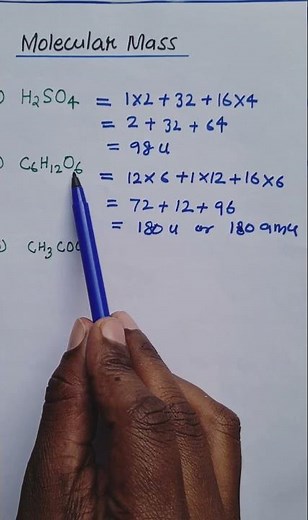 Molecular Mass
) H₂SO₄ = 1×2 + 32 + 16×4
= 2 + 32 + 64
= 98 u
) C₆H₁₂O₆ = 12×6 + 1×12 + 16×6
= 72 + 12 + 96
= 180 u or 180 amu
) CH₃CO